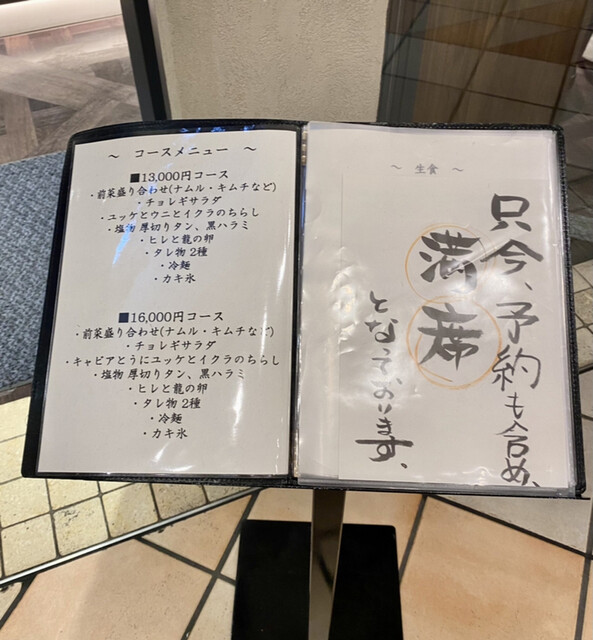 ～ コースメニュー ～
■13,000円コース
・前菜盛り合わせ(ナムル・キムチなど)
・チョレギサラダ
・ユッケとウニとイクラのちらし
・塩物 厚切りタン、黒ハラミ
・ヒレと龍の卵
・タレ物 2種
・冷麺
・カキ氷
■16,000円コース
・前菜盛り合わせ(ナムル・キムチなど)
・チョレギサラダ
・キャビアとうにユッケとイクラのちらし
・塩物 厚切りタン、黒ハラミ
・ヒレと龍の卵
・タレ物 2種
・冷麺
・カキ氷
～ 生食 ～
只今、予約も含め、
満席
となっております、